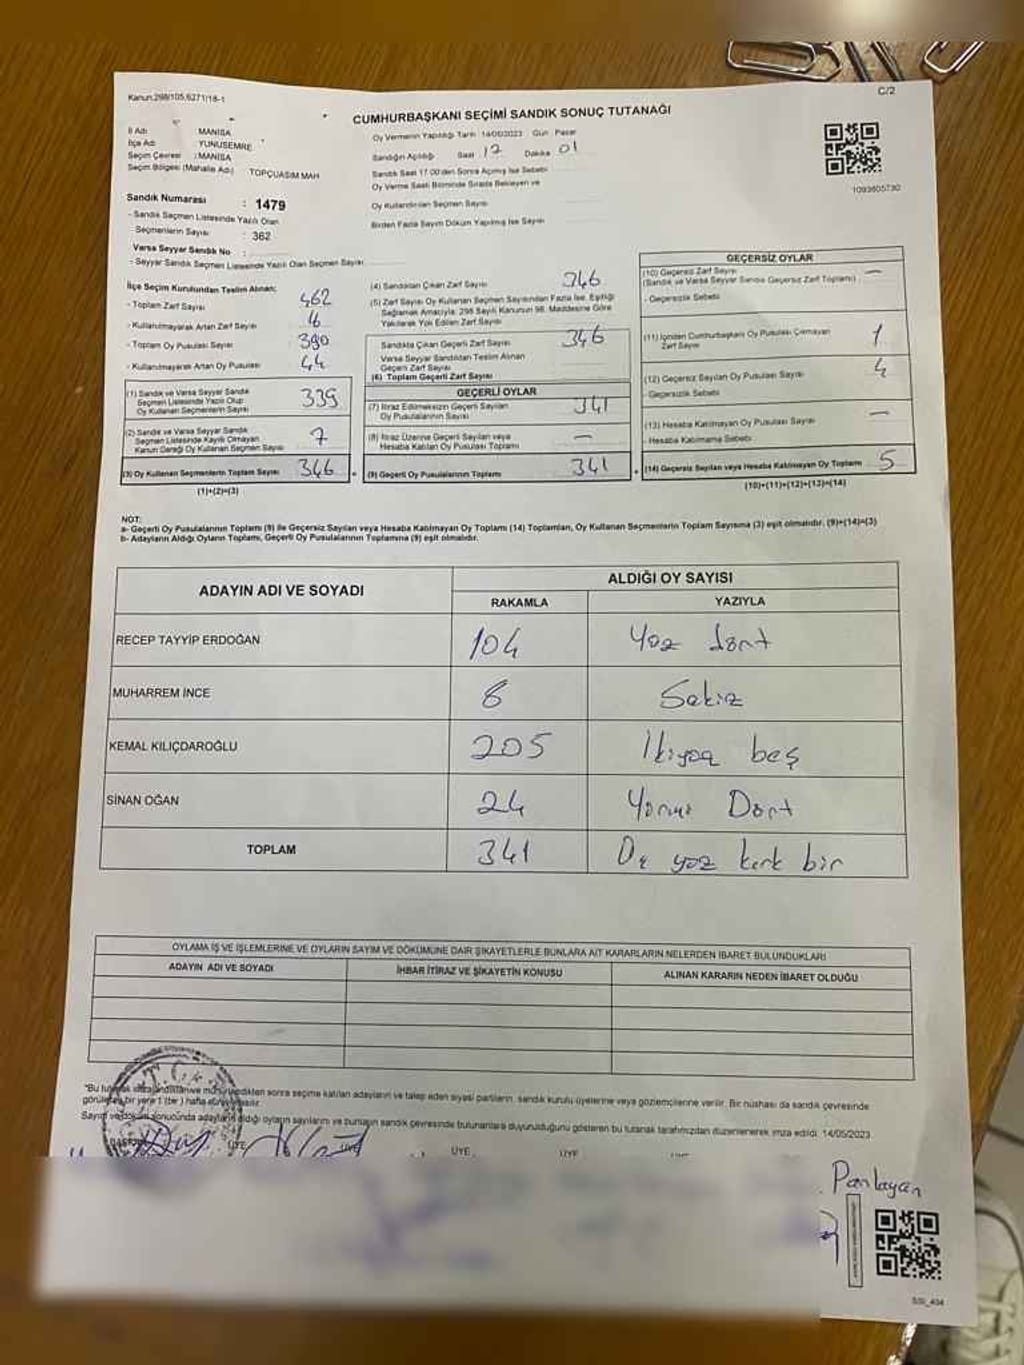 Kanun:298/105,6271/18-1
C/2
CUMHURBAŞKANI SEÇİMİ SANDIK SONUÇ TUTANAĞI
İl Adı : MANİSA
İlçe Adı YUNUSEMRE
Seçim Çevresi : MANİSA
Seçim Bölgesi (Mahalle Adı) TOPÇUASIM MAH
Sandık Numarası : 1479
- Sandık Seçmen Listesinde Yazılı Olan
Seçmenlerin Sayısı : 362
Varsa Seyyar Sandık No :
- Seyyar Sandık Seçmen Listesinde Yazılı Olan Seçmen Sayısı
Oy Vermenin Yapıldığı Tarih 14/05/2023 Gün : Pazar
Sandığın Açıldığı Saat 17 Dakika 01
Sandık Saat 17:00'den Sonra Açılmış İse Sebebi
Oy Verme Saati Bitiminde Sırada Bekleyen ve
Oy Kullandırılan Seçmen Sayısı
Birden Fazla Sayım Döküm Yapılmış İse Sayısı
1093605730
İlçe Seçim Kurulundan Teslim Alınan;
- Toplam Zarf Sayısı 462
- Kullanılmayarak Artan Zarf Sayısı
- Toplam Oy Pusulası Sayısı 390
- Kullanılmayarak Artan Oy Pusulası 44
(1) Sandık ve Varsa Seyyar Sandık
Seçmen Listesinde Yazılı Olup
Oy Kullanan Seçmenlerin Sayısı 339
(2) Sandık ve Varsa Seyyar Sandık
Seçmen Listesinde Kayıtlı Olmayan
Kanun Gereği Oy Kullanan Seçmen Sayısı 7
(3) Oy Kullanan Seçmenlerin Toplam Sayısı 346
(1)+(2)=(3)
(4) Sandıktan Çıkan Zarf Sayısı 346
(5) Zarf Sayısı Oy Kullanan Seçmen Sayısından Fazla İse, Eşitliği
Sağlamak Amacıyla; 298 Sayılı Kanunun 98. Maddesine Göre
Yakılarak Yok Edilen Zarf Sayısı
Sandıkta Çıkan Geçerli Zarf Sayısı 346
Varsa Seyyar Sandıktan Teslim Alınan
Geçerli Zarf Sayısı
(6) Toplam Geçerli Zarf Sayısı
GEÇERLİ OYLAR
(7) İtiraz Edilmeksizin Geçerli Sayılan
Oy Pusulalarının Sayısı 341
(8) İtiraz Üzerine Geçerli Sayılan veya
Hesaba Katılan Oy Pusulası Toplamı —
(9) Geçerli Oy Pusulalarının Toplamı 341
GEÇERSİZ OYLAR
(10) Geçersiz Zarf Sayısı —
(Sandık ve Varsa Seyyar Sandık Geçersiz Zarf Toplamı)
- Geçersizlik Sebebi
(11) İçinden Cumhurbaşkanı Oy Pusulası Çıkmayan
Zarf Sayısı 1
(12) Geçersiz Sayılan Oy Pusulası Sayısı 4
- Geçersizlik Sebebi
(13) Hesaba Katılmayan Oy Pusulası Sayısı —
- Hesaba Katılmama Sebebi
(14) Geçersiz Sayılan veya Hesaba Katılmayan Oy Toplamı 5
(10)+(11)+(12)+(13)=(14)
NOT:
a- Geçerli Oy Pusulalarının Toplamı (9) ile Geçersiz Sayılan veya Hesaba Katılmayan Oy Toplamı (14) Toplamları, Oy Kullanan Seçmenlerin Toplam Sayısına (3) eşit olmalıdır. (9)+(14)=(3)
b- Adayların Aldığı Oyların Toplamı, Geçerli Oy Pusulalarının Toplamına (9) eşit olmalıdır.
ADAYIN ADI VE SOYADI
ALDIĞI OY SAYISI
RAKAMLA YAZIYLA
RECEP TAYYİP ERDOĞAN 104 Yüz dört
MUHARREM İNCE 8 Sekiz
KEMAL KILIÇDAROĞLU 205 İkiyüz beş
SİNAN OĞAN 24 Yirmi Dört
TOPLAM 341 Üç yüz kırk bir
OYLAMA İŞ VE İŞLEMLERİNE VE OYLARIN SAYIM VE DÖKÜMÜNE DAİR ŞİKAYETLERLE BUNLARA AİT KARARLARIN NELERDEN İBARET BULUNDUKLARI
ADAYIN ADI VE SOYADI İHBAR İTİRAZ VE ŞİKAYETİN KONUSU ALINAN KARARIN NEDEN İBARET OLDUĞU
sonra seçime katılan adayların ve talep eden siyasi partilerin, sandık kurulu üyelerine veya gözlemcilerine verilir. Bir nüshası da sandık çevresinde
görülecek bir yere 1 (bir) hafta
Sayım ve döküm sonucunda adayların aldığı oyların sayılarını ve bunların sandık çevresinde bulunanlara duyurulduğunu gösteren bu tutanak tarafımızdan düzenlenerek imza edildi. 14/05/2023
BAŞKAN ÜYE ÜYE ÜYE ÜYE
Panlayan
SSI_404